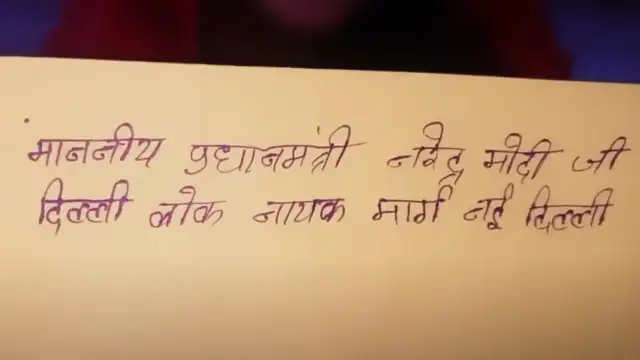 माननीय प्रधानमंत्री नरेंद्र मोदी जी
दिल्ली लोक नायक मार्ग नई दिल्ली